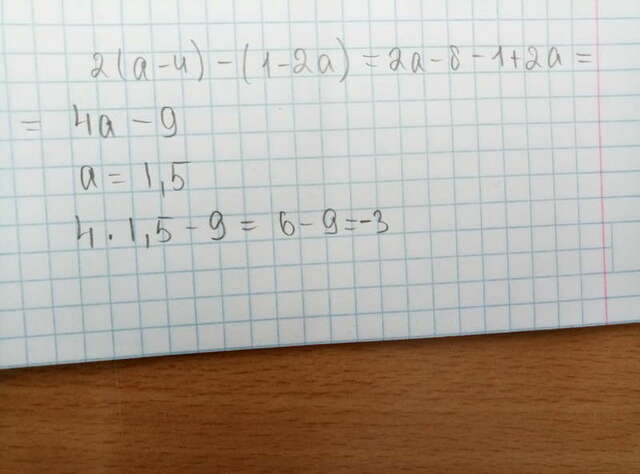 2(a-4)-(1-2a)=2a-8-1+2a=
= 4a-9
a=1,5
4·1,5-9= 6-9=-3